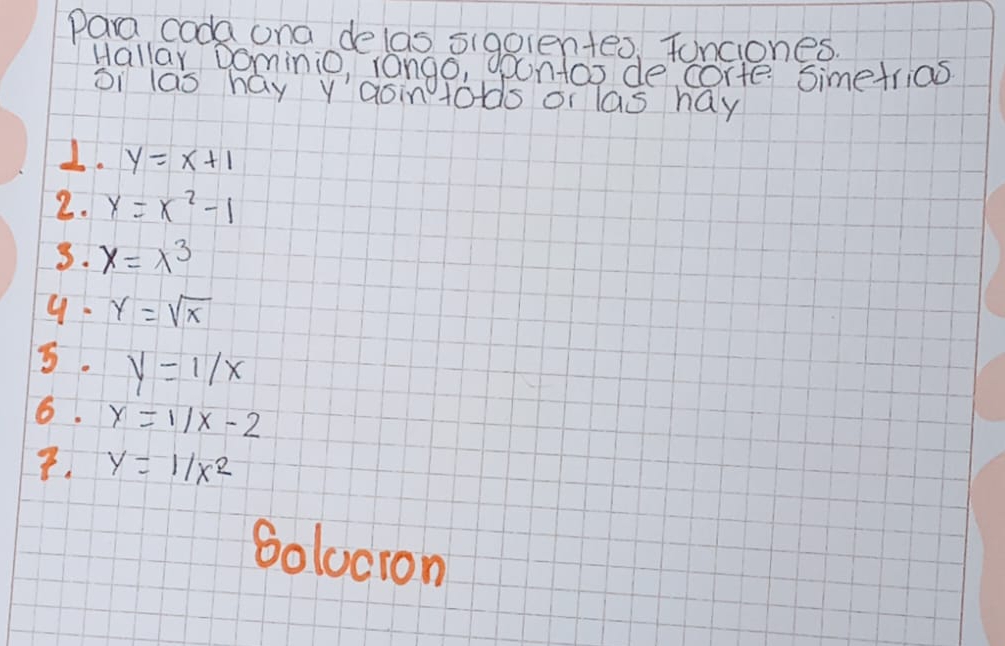 Para cada una de las siguientes funciones.
Hallar Dominio, rango, puntos de corte simetrias
si las hay y asintotas si las hay
1. y = x + 1
2. y = x² - 1
3. y = x³
4. y = √x
5. y = 1/x
6. y = 1/x - 2
7. y = 1/x²
Solucion